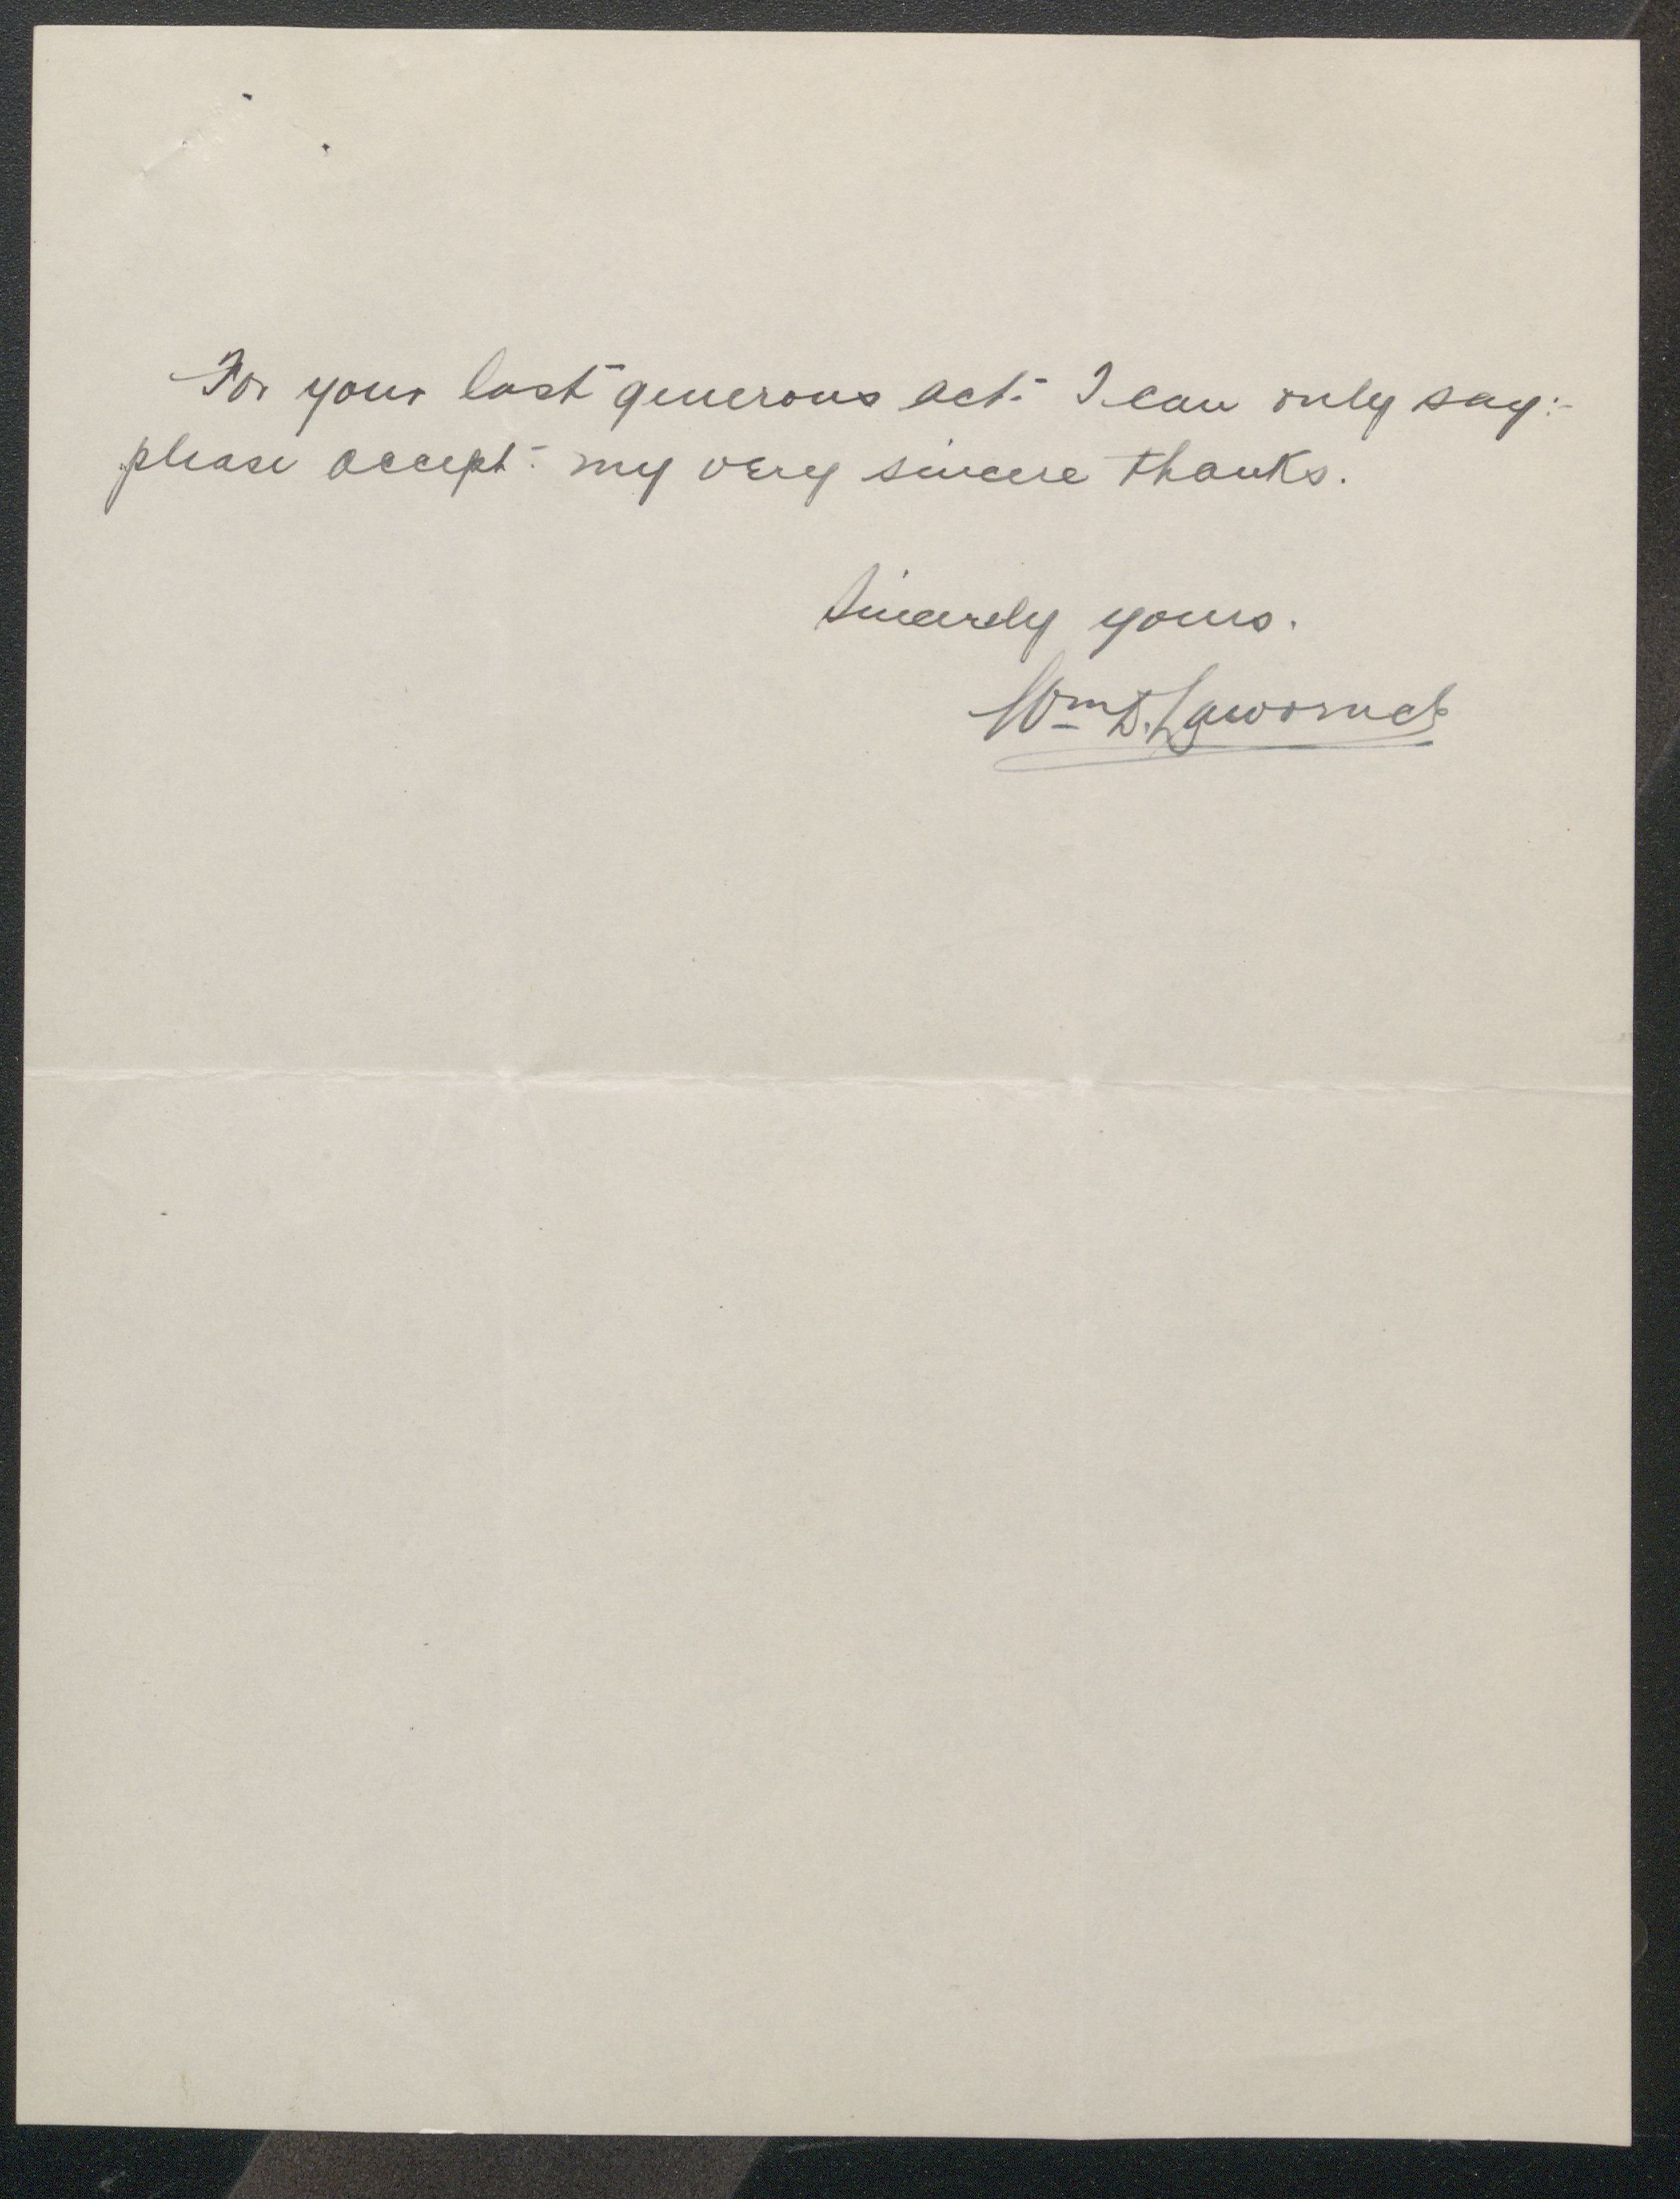 For your last generous act I can only say:-
please accept my very sincere thanks.
Sincerely yours.
Wm D.